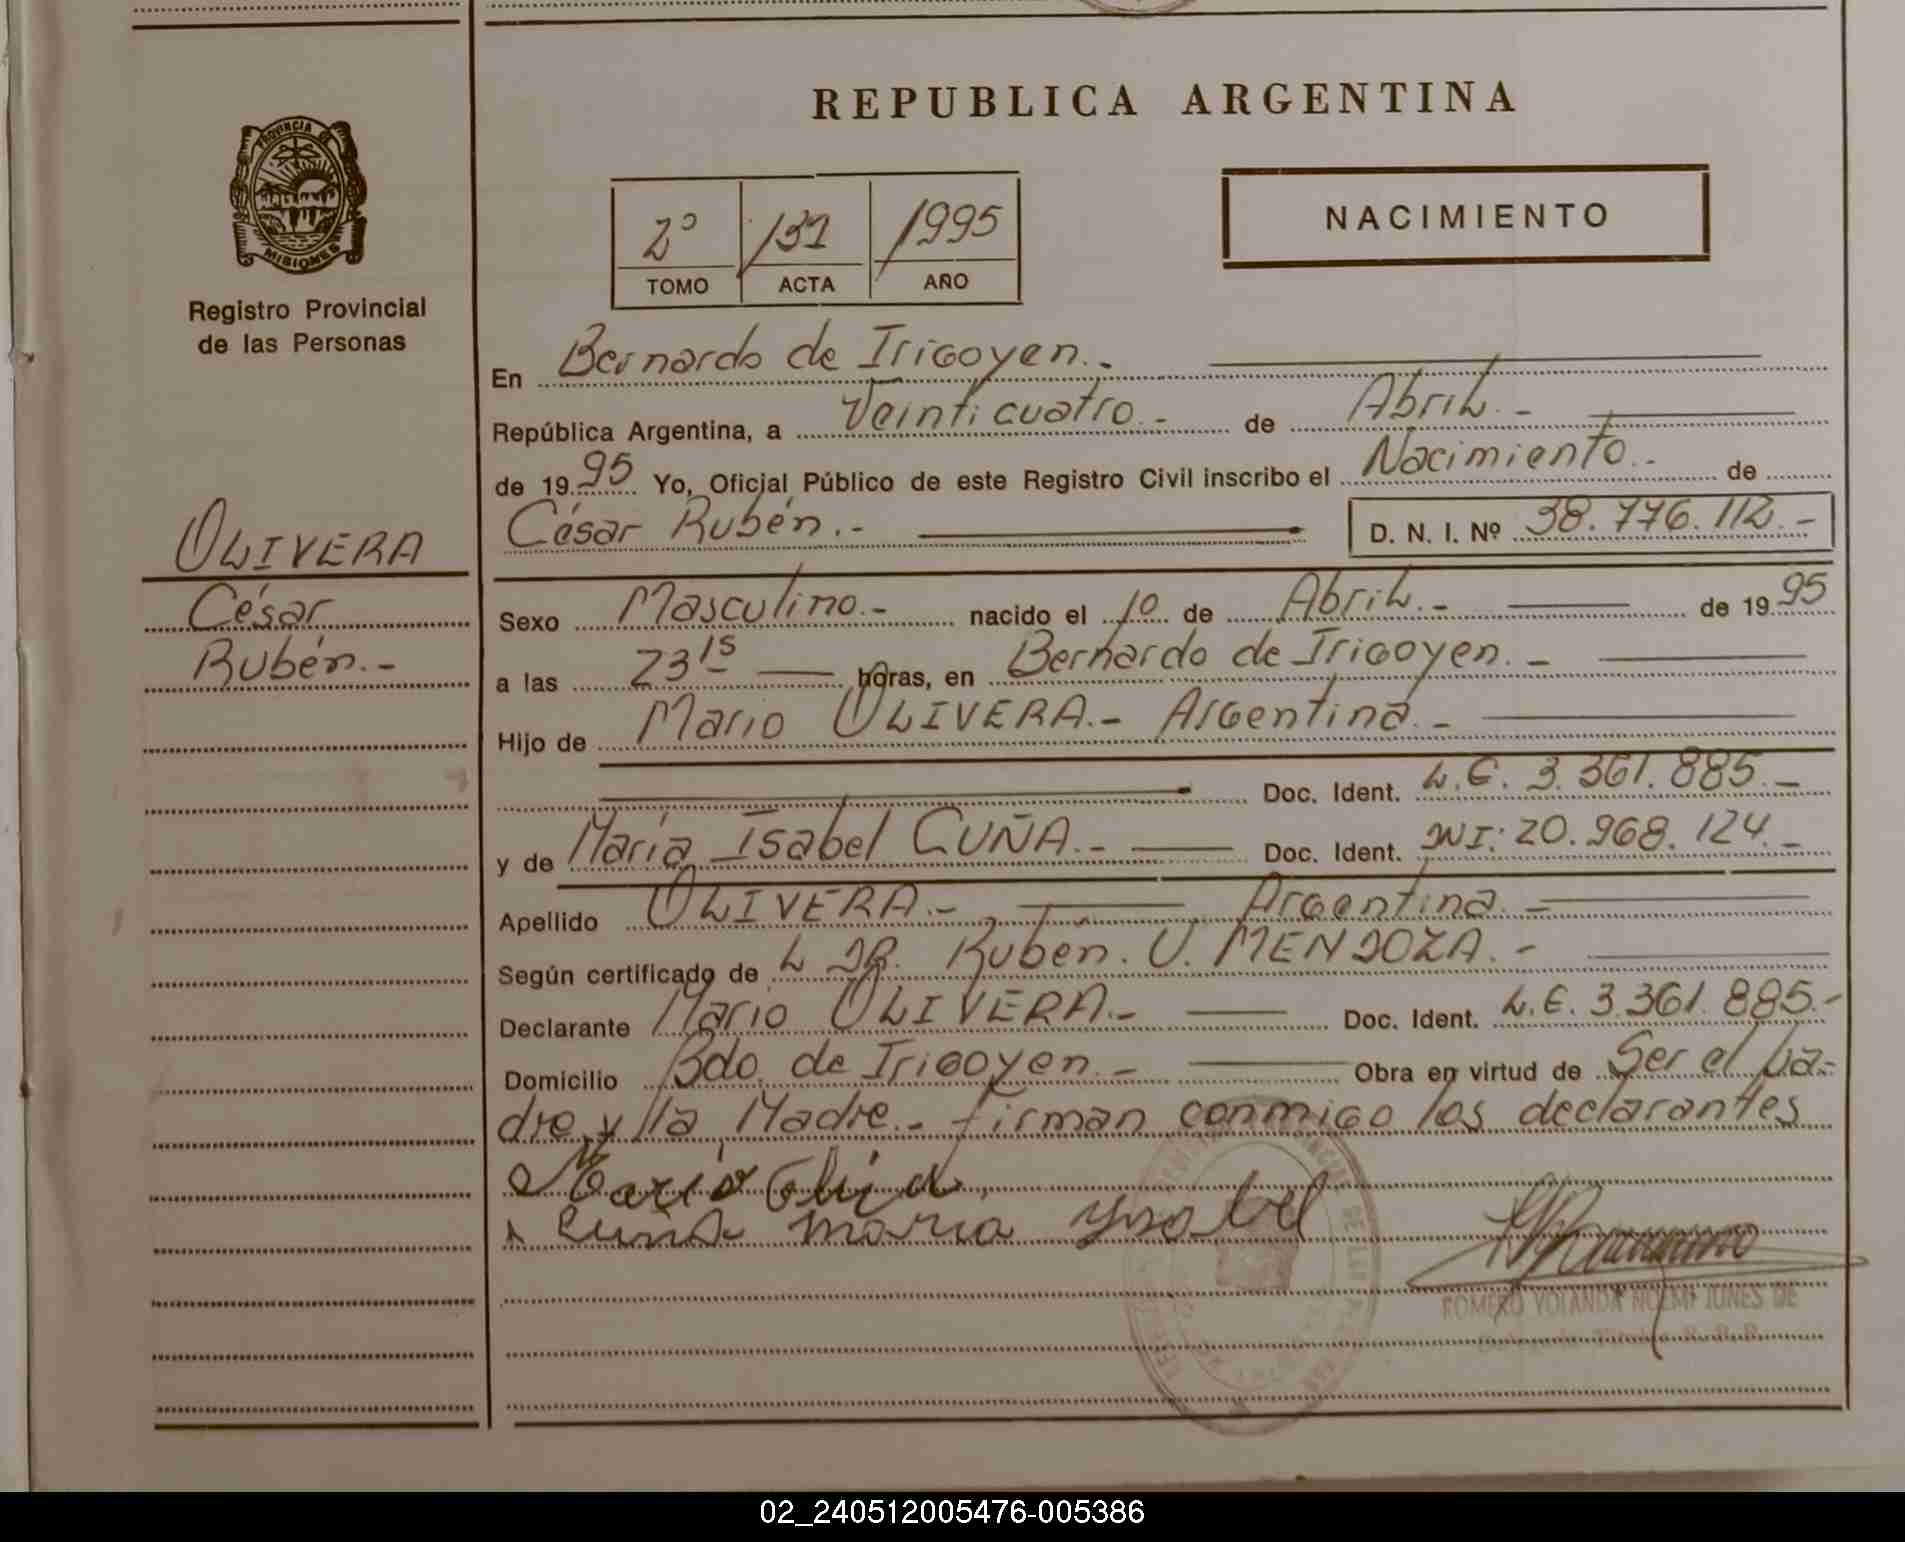 REPUBLICA ARGENTINA
PROVINCIA DE
MISIONES
Registro Provincial
de las Personas
2º 131 1995
TOMO ACTA AÑO
NACIMIENTO
OLIVERA
César
Rubén.-
En Bernardo de Irigoyen.-
República Argentina, a Veinticuatro.- de Abril.-
de 1995 Yo, Oficial Público de este Registro Civil inscribo el Nacimiento.- de
César Rubén.- D. N. I. Nº 38.776.112.-
Sexo Masculino.- nacido el 10 de Abril.- de 1995
a las 23 15 horas, en Bernardo de Irigoyen.-
Hijo de Mario OLIVERA.- Argentina.-
Doc. Ident. L.E. 3.361.885.-
y de María Isabel CUÑA.- Doc. Ident. DNI: 20.968.124.-
Apellido OLIVERA.- Argentina.-
Según certificado de L DR. Rubén. U. MENDOZA.-
Declarante Mario OLIVERA.- Doc. Ident. L.E. 3.361.885.-
Domicilio Bdo. de Irigoyen.- Obra en virtud de Ser el Pa-
dre y la Madre.- firman conmigo los declarantes
Mario
Cuña maria ysabel
ROMERO YOLANDA NOEMI JUNES DE
02_240512005476-005386